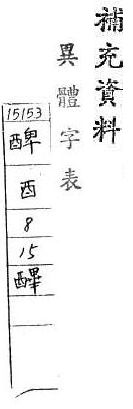 補充資料
異體字表
15153
酉
8
15